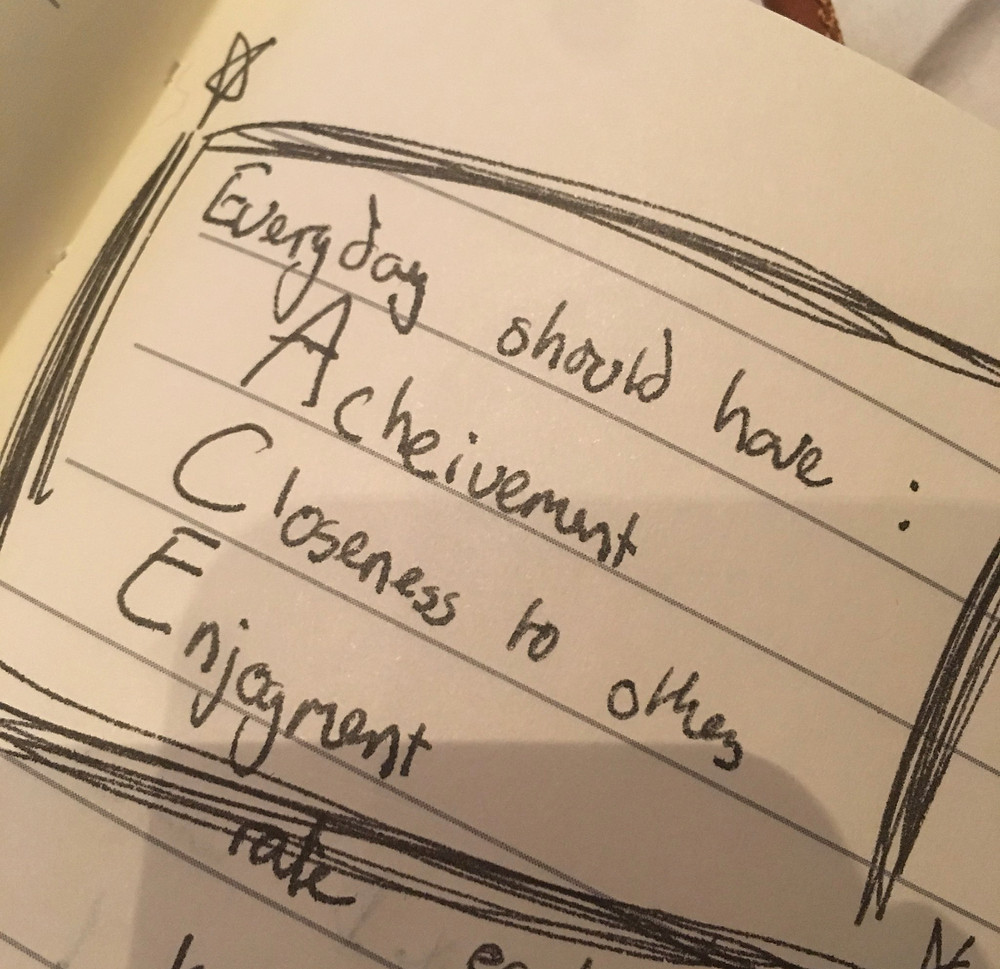 Everyday should have :
Acheivement
Closeness to others
Enjoyment
rate